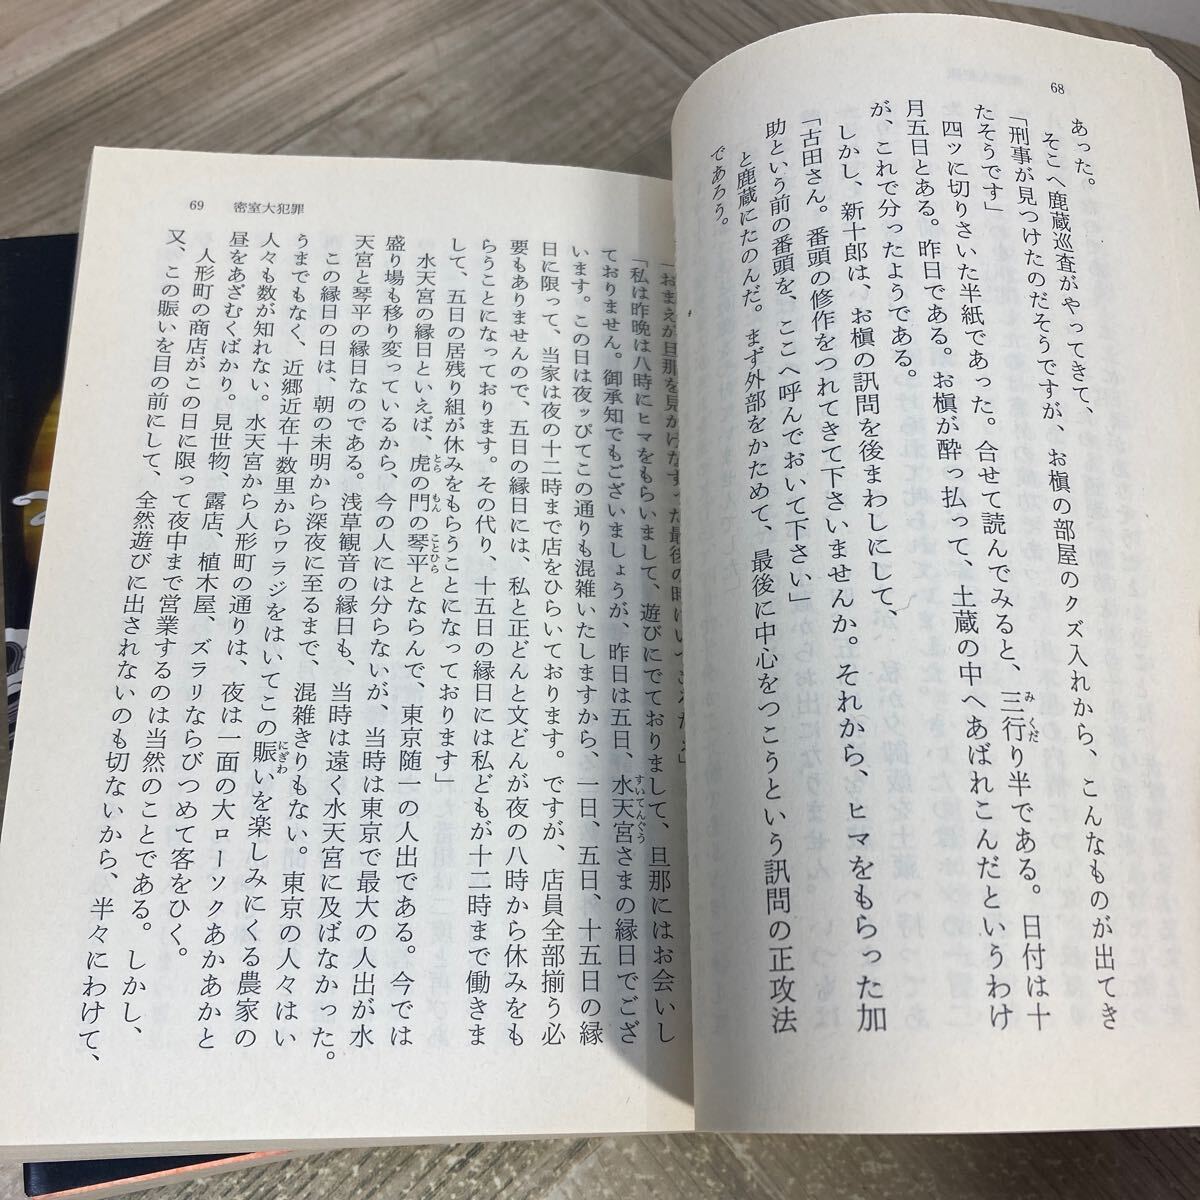 68
あった。
そこへ鹿蔵巡査がやってきて、
「刑事が見つけたのだそうですが、お槇の部屋のクズ入れから、こんなものが出てき
たそうです」
四ッに切りさいた半紙であった。合せて読んでみると、三行り半である。日付は十
みくだ
月五日とある。昨日である。お槇が酔っ払って、土蔵の中へあばれこんだというわけ
が、これで分ったようである。
しかし、新十郎は、お槇の訊問を後まわしにして、
「古田さん。番頭の修作をつれてきて下さいませんか。それから、ヒマをもらった加
助という前の番頭を、ここへ呼んでおいて下さい」
と鹿蔵にたのんだ。まず外部をかためて、最後に中心をつこうという訊問の正攻法
であろう。
69 密室大犯罪
「おまえが旦那を見かけなすった最後の時は
「私は昨晩は八時にヒマをもらいまして、遊びにでておりまして、旦那にはお会いし
ておりません。御承知でもございましょうが、昨日は五日、水天宮さまの縁日でござ
すいてんぐう
います。この日は夜ッぴてこの通りも混雑いたしますから、一日、五日、十五日の縁
日に限って、当家は夜の十二時まで店をひらいております。ですが、店員全部揃う必
要もありませんので、五日の縁日には、私と正どんと文どんが夜の八時から休みをも
らうことになっております。その代り、十五日の縁日には私どもが十二時まで働きま
して、五日の居残り組が休みをもらうことになっております」
水天宮の縁日といえば、虎の門の琴平とならんで、東京随一の人出である。今では
とら もん ことひら
盛り場も移り変っているから、今の人には分らないが、当時は東京で最大の人出が水
天宮と琴平の縁日なのである。浅草観音の縁日も、当時は遠く水天宮に及ばなかった。
この縁日の日は、朝の未明から深夜に至るまで、混雑きりもない。東京の人々はい
うまでもなく、近郷近在十数里からワラジをはいてこの賑いを楽しみにくる農家の
にぎわ
人々も数が知れない。水天宮から人形町の通りは、夜は一面の大ローソクあかあかと
昼をあざむくばかり。見世物、露店、植木屋、ズラリならびつめて客をひく。
人形町の商店がこの日に限って夜中まで営業するのは当然のことである。しかし、
又、この賑いを目の前にして、全然遊びに出されないのも切ないから、半々にわけて、